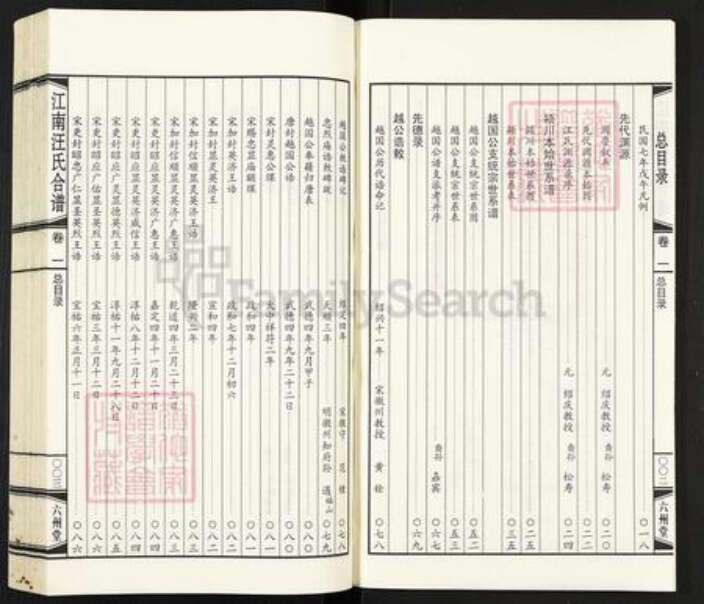 总目录
卷一
总目录
〇〇二
六州堂
民国七年戊午凡例 〇一八
先代渊源
元 绍庆教授 裔孙 松寿 〇二〇
先代渊源本始图 〇二二
江氏渊源录序 元 绍庆教授 裔孙 松寿 〇二四
颍川本始世系谱
颍川本始世系图
颍川本始世系表 〇三五
越国公支统宗世系谱
越国公支统宗世系图 〇五二
越国公支统宗世系表 〇五三
越国公诸支派考并序 裔孙 嘉宾 〇六七
先德录 〇六九
越公诰敕
越国公历代诰命记 绍兴十一年 宋徽州教授 黄 〇七八
越国公敕诰碑记 绍定四年 宋徽守 范 〇七八
忠烈庙诰敕碑跋 天顺三年 明徽州知府孙遇 〇七九
越国公奉籍归唐表 武德四年九月甲子 〇八〇
唐封越国公诰 武德四年九月二十二日 〇八〇
宋封灵惠公牒 大中祥符二年 〇八一
宋赐忠显庙额牒 政和四年 〇八一
宋加封英济王诰 政和七年十二月初六 〇八二
宋加封显灵英济王 宣和四年 〇八二
宋加封信顺显灵英济王诰 隆兴二年 〇八三
宋加封信顺显灵英济广惠王诰 乾道四年三月二十三日 〇八三
宋更封昭应显灵英济广惠王诰 嘉定四年十一月二十日 〇八四
宋更封昭应显灵英济威信王诰 淳祐八年十二月十二日 〇八四
宋更封昭应广灵显德英烈王诰 淳祐十一年九月二十八日 〇八五
宋更封昭应广佑显圣英烈王诰 宝祐三年三月十二日 〇八六
宋更封昭忠广仁显圣英烈王诰 宝祐六年正月十一日 〇八六
江南汪氏合谱
卷一
总目录
〇〇三
六州堂
FamilySearch